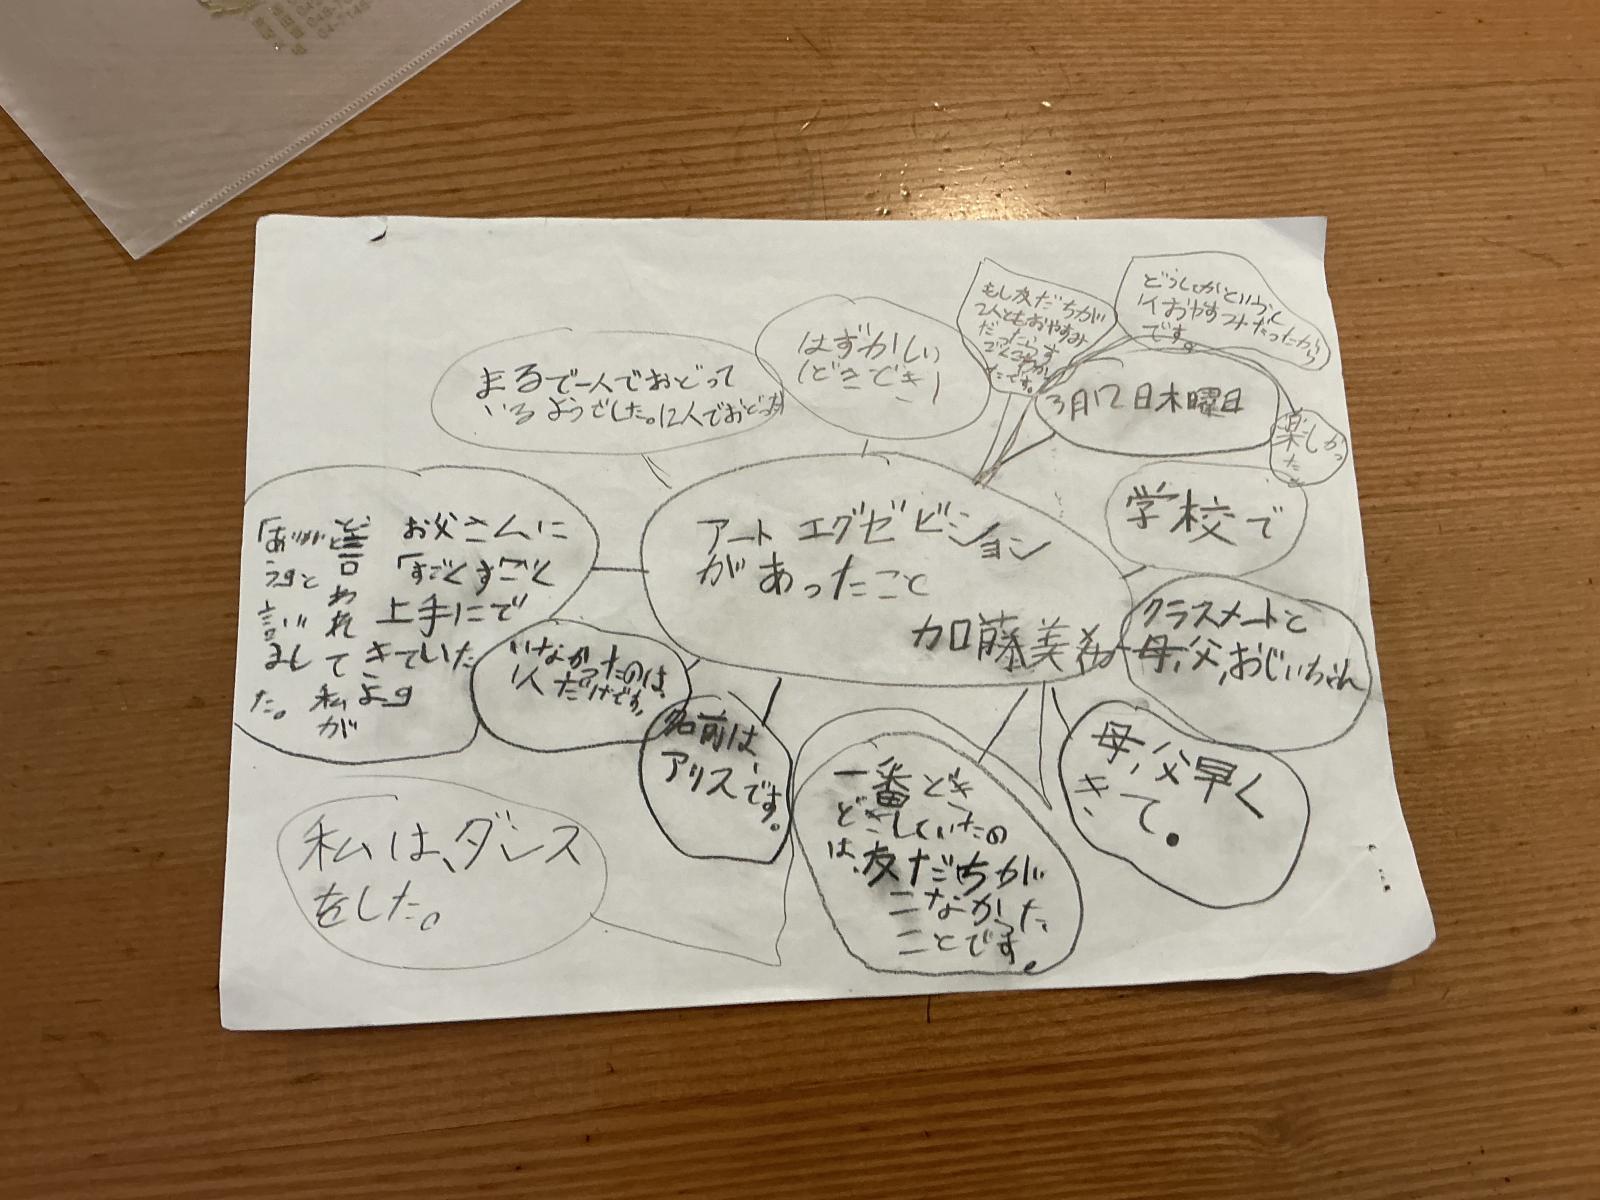 アート エグゼビジョン
があったこと
加藤美
3月12日木曜日
楽しかっ
た
もし友だちが
2人ともおやすみ
だったら
たです。
1人おやすみだったから
です。
はずかしい
(どきどき)
まるで一人でおどって
いるようでした。12人でおどった
学校で
クラスメートと
母、父、おじいちゃん
母、父早く
きて。
一番どき
どきしていたの
は、友だちが
こなかった
ことです。
名前は、
アリスです。
いなかったのは、
1人だけです。
お父さんに
「すごくすごく
上手にで
きていた
よ」
と言われて私が
「ありがとう」と言いました。
私は、ダンス
をした。